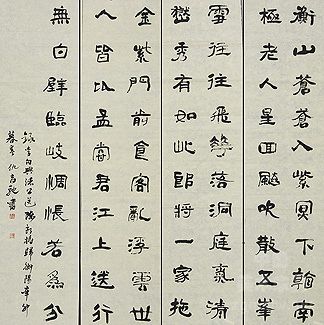 衡山蒼蒼入紫冥下看南
極老人星回飈吹散五峯
雪往往飛花落洞庭氣清
嶽秀有如此郎將一家拖
金紫門前食客亂浮雲世
人皆比孟嘗君江上送行
無白璧臨岐惆悵若為分
錄李白與諸公送陳郎將歸衡陽